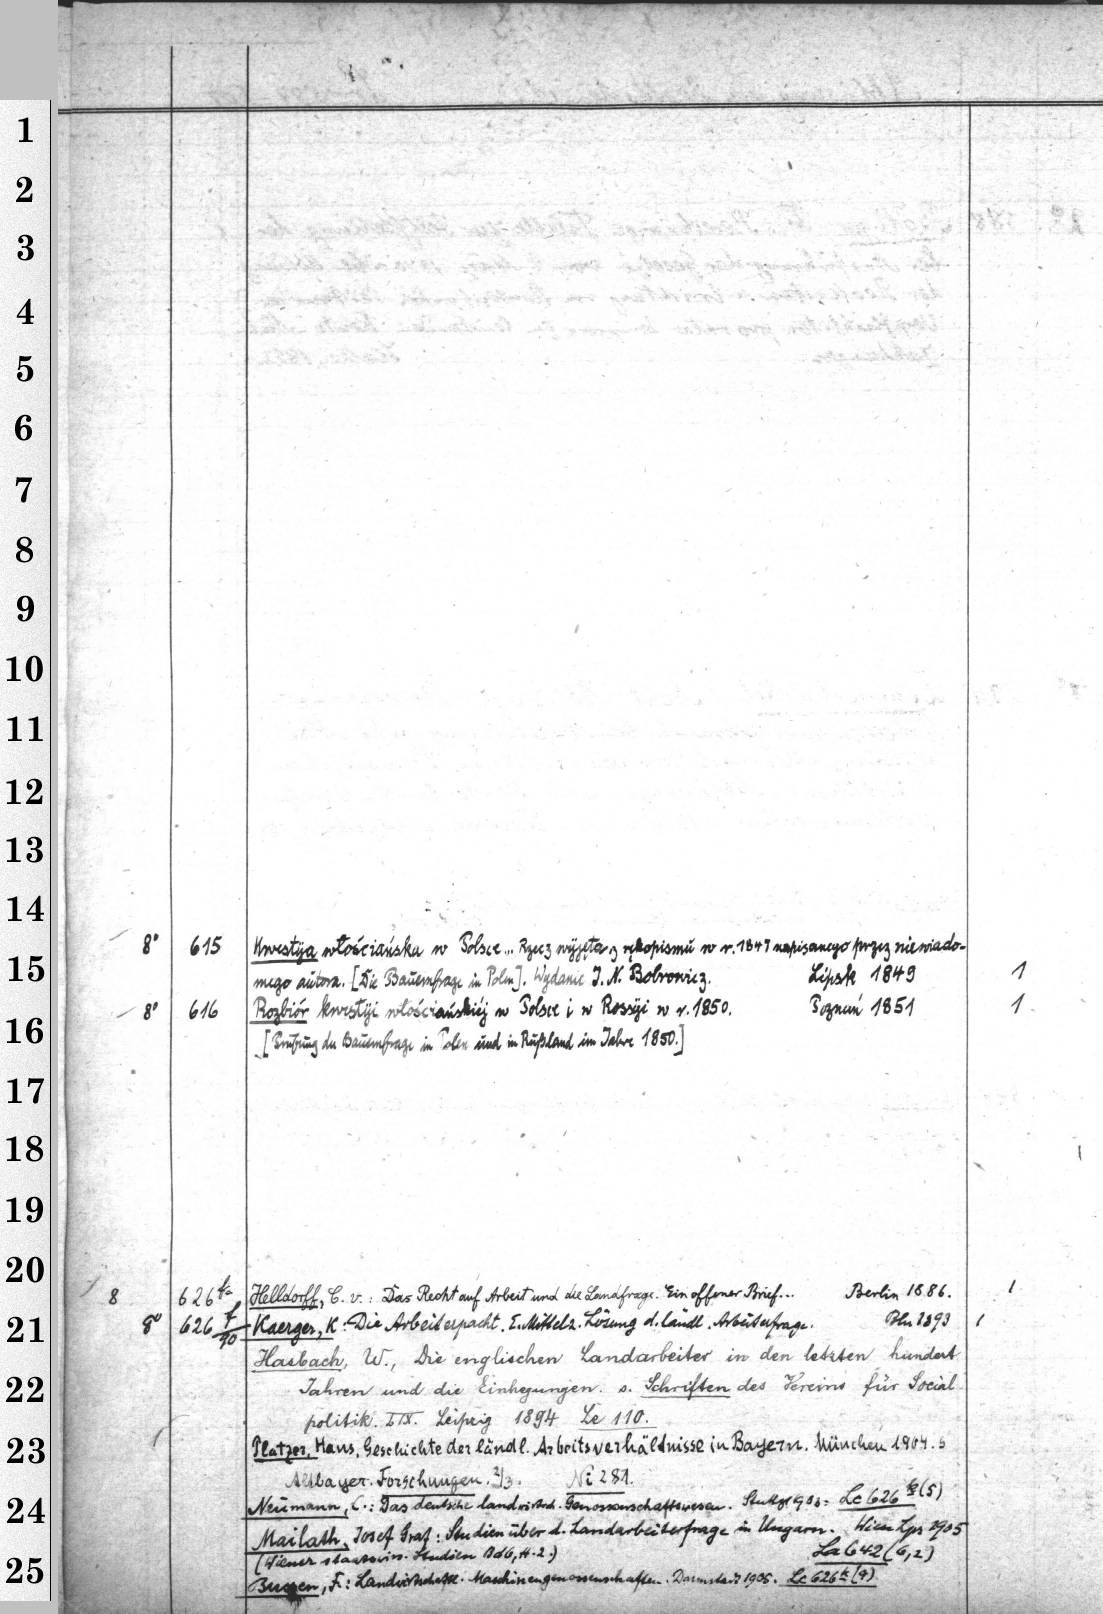 1
2
3
4
5
6
7
8
9
10
11
12
13
14
8° 615 Kwestija włościańska w Polsce... Rzecz wyjęta z rękopismu w r. 1847 napisanego przez niewiado-
15 mego autora. [Die Bauernfrage in Polen]. Wydanie J. N. Bobrowicz. Lipsk 1849 1
8° 616 Rozbiór kwestiji włościańskiéj w Polsce i w Rossyi w r. 1850. Poznań 1851 1
16
[Prüfung der Bauernfrage in Polen und in Rußland im Jahre 1850.]
17
18
19
20
8 626 Helldorff, C. v.: Das Recht auf Arbeit und die Landfrage. Ein offener Brief... Berlin 1886. 1
21 8° 626 f/90 Kaerger, K: Die Arbeiterpacht. E. Mittel z. Lösung d. ländl. Arbeiterfrage. Bln 1893 1
Hasbach, W., Die englischen Landarbeiter in den letzten hundert
22 Jahren und die Einhegungen. s. Schriften des Vereins für Social
politik. LIX. Leipzig 1894 Le 110.
23 Platzer, Hans, Geschichte der ländl. Arbeitsverhältnisse in Bayern. München 1904. s
Altbayer. Forschungen. 2/3. Ni 281.
24 Neumann, C.: Das deutsche landwirtsch. Genossenschaftswesen. Stuttg. Lc 626 (5)
Mailath, Josef Graf: Studien über d. Landarbeiterfrage in Ungarn. Wien Lpz 1905
(Wiener staatswiss. Studien Bd 6, H. 2.) La 642 (6,2)
25 F.: Landwirtschaftl. Maschinengenossenschaften. Darmstadt 1905. Lc 626 k (9)